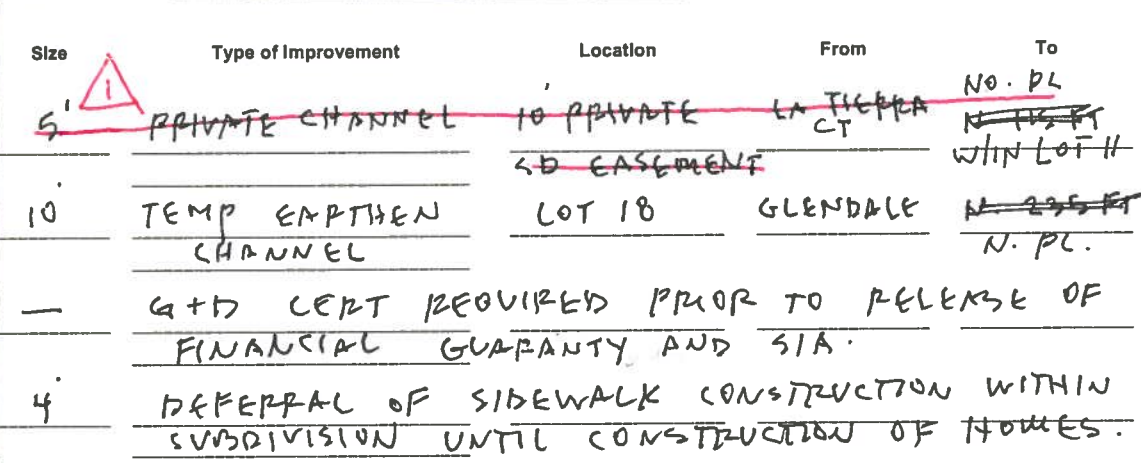 Size Type of Improvement Location From To
1
NO. PL
5' PRIVATE CHANNEL 10' PRIVATE LA TIERRA N 115 FT
SD EASEMENT CT W/IN LOT 11
10' TEMP EARTHEN LOT 18 GLENDALE N. 235 FT
CHANNEL N. PL.
— G+D CERT REQUIRED PRIOR TO RELEASE OF
FINANCIAL GUARANTY AND SIA.
4' DEFERRAL OF SIDEWALK CONSTRUCTION WITHIN
SUBDIVISION UNTIL CONSTRUCTION OF HOMES.